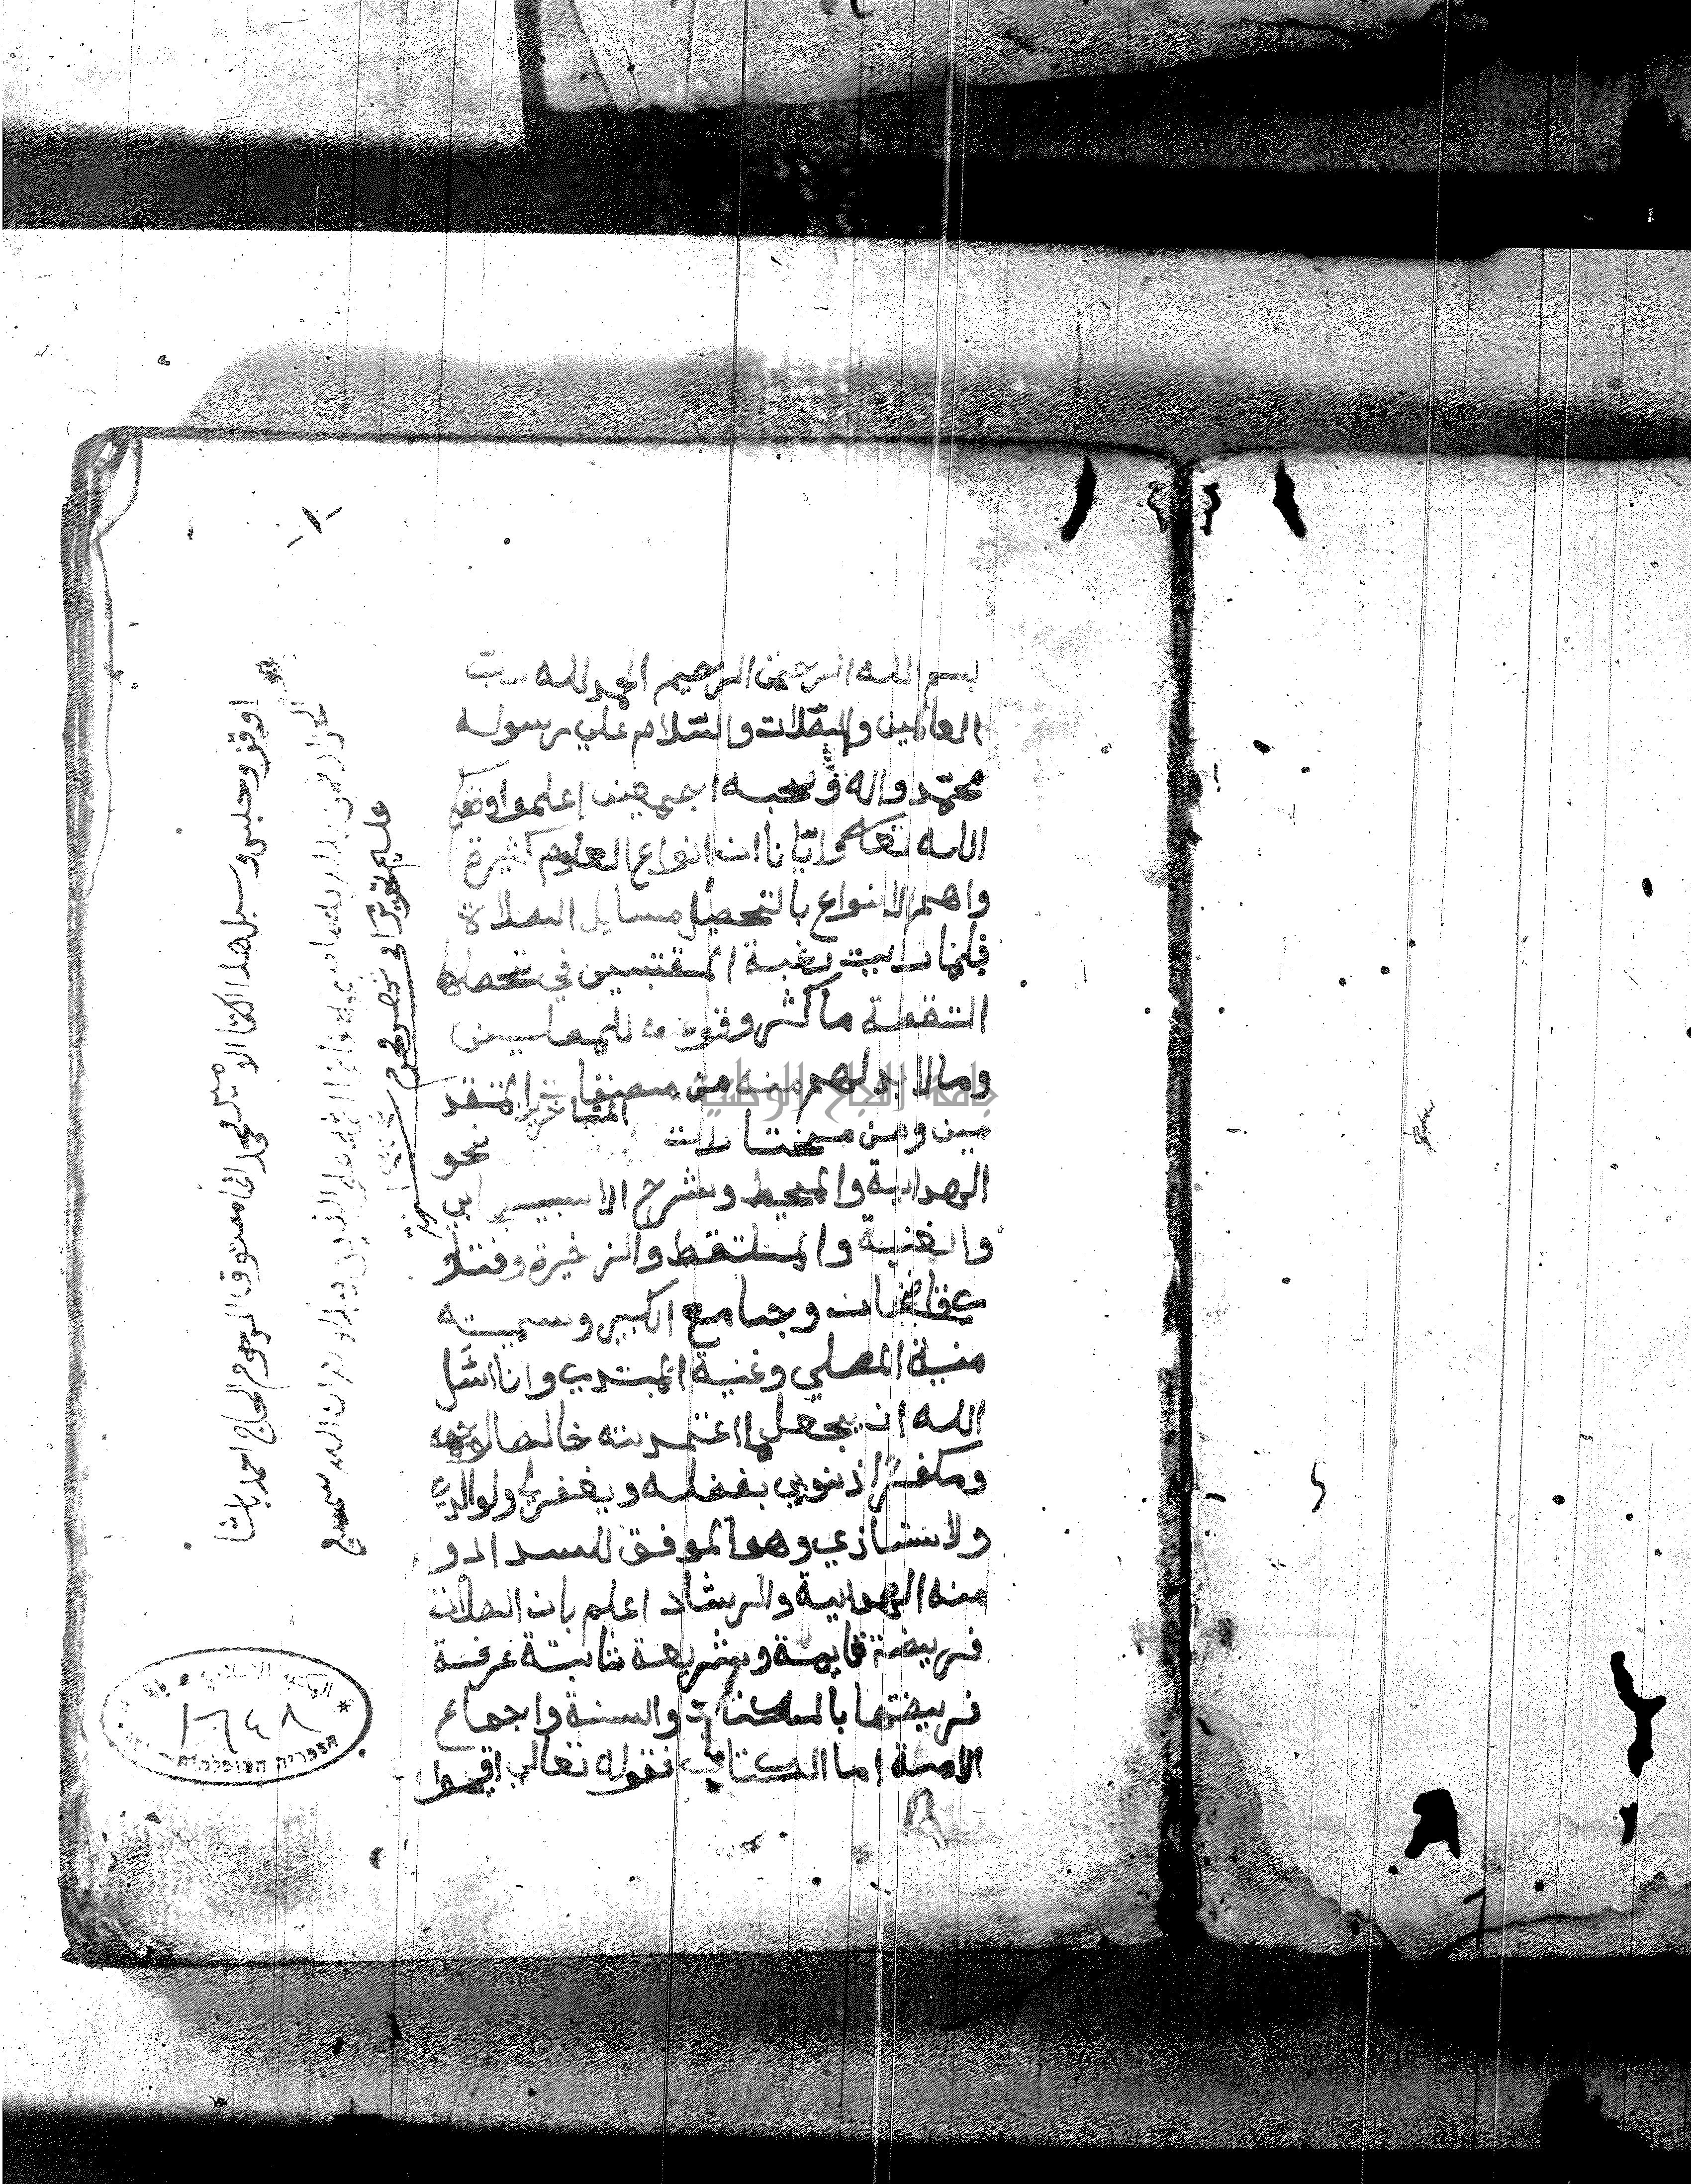 بسم الله الرحمن الرحيم الحمد لله رب
العالمين والصلات والسلام علي رسوله
محمد واله وصحبه اجمعين اعلموا وفقكم
الله تعالى وايانا ان انواع العلوم كثيرة
واهم الانواع بالتحصيل مسايل الصلاة
فلما رايت رغبة المقتبسين في تحصلها
التقطة ما كثر وقوعه للمصلين
وما لا بد لهم منه من مصنفات المتقد
مين ومن مختارات المتاخرين نحو
الهداية والمحيط وشرح الاسبيجابي
والغنية والملتقط والذخيرة وفتاو
ي قاضخان وجامع الكبير وسميته
منية المصلي وغنية المبتدي وانا اسئل
الله ان يجعل ما اعتمدته خالصا لوجهه
ومكفرا ذنوبي بفضله ويغفرلي ولوالدي
ولاستاذي وهو الموفق للسداد و
منه الهداية والرشاد اعلم بان الصلات
فريضة قايمة وشريعة ثابتة عرفة
فريضتها بالكتاب والسنة واجماع
الامة اما الكتاب فقوله تعالي اقيموا
اوقف وحبس وسبل هذا الكتاب الامير محمد اغا معتوق المرحوم الحاج احمد باشا
الجزار
سميع
عليم
١٦٤٨
جامعة النجاح الوطنية